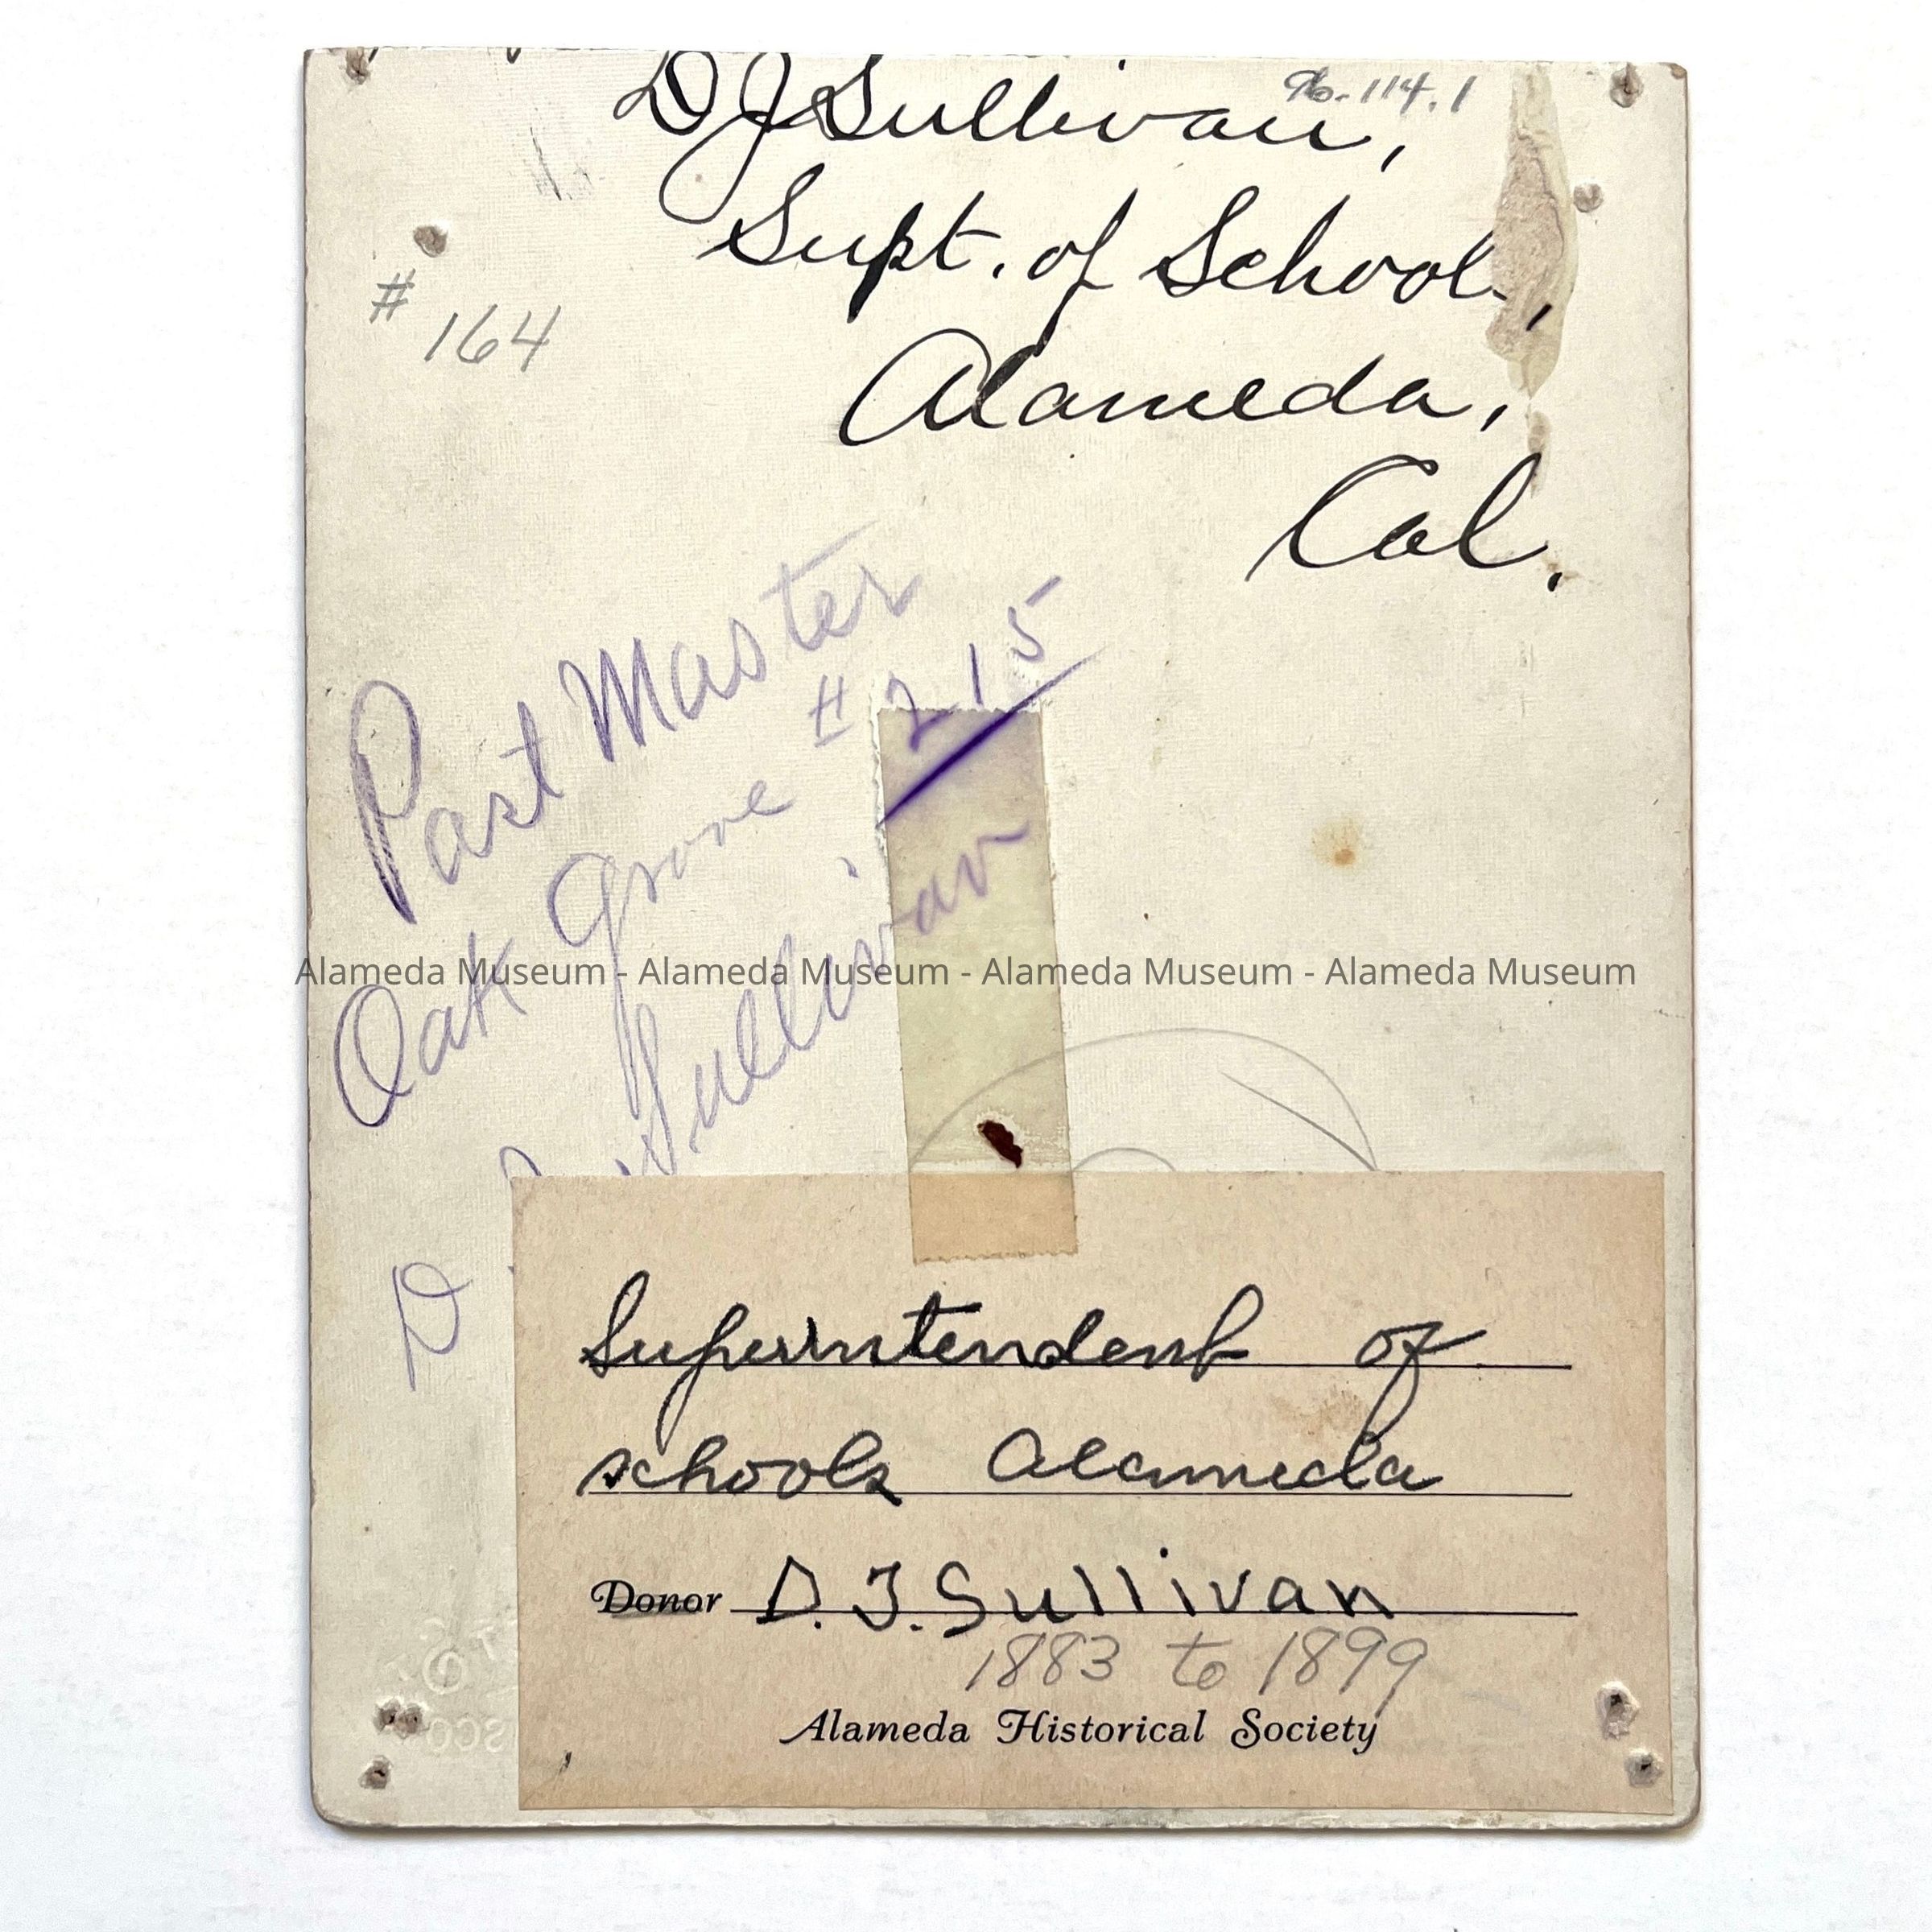 96-114.1
D J Sullivan,
Supt. of School,
# 164
Alameda,
Cal.
Past Master
# 215
Oak Grove
D. Sullivan
Alameda Museum - Alameda Museum - Alameda Museum - Alameda Museum
Superintendent of
schools Alameda
Donor D. J. Sullivan
1883 to 1899
Alameda Historical Society